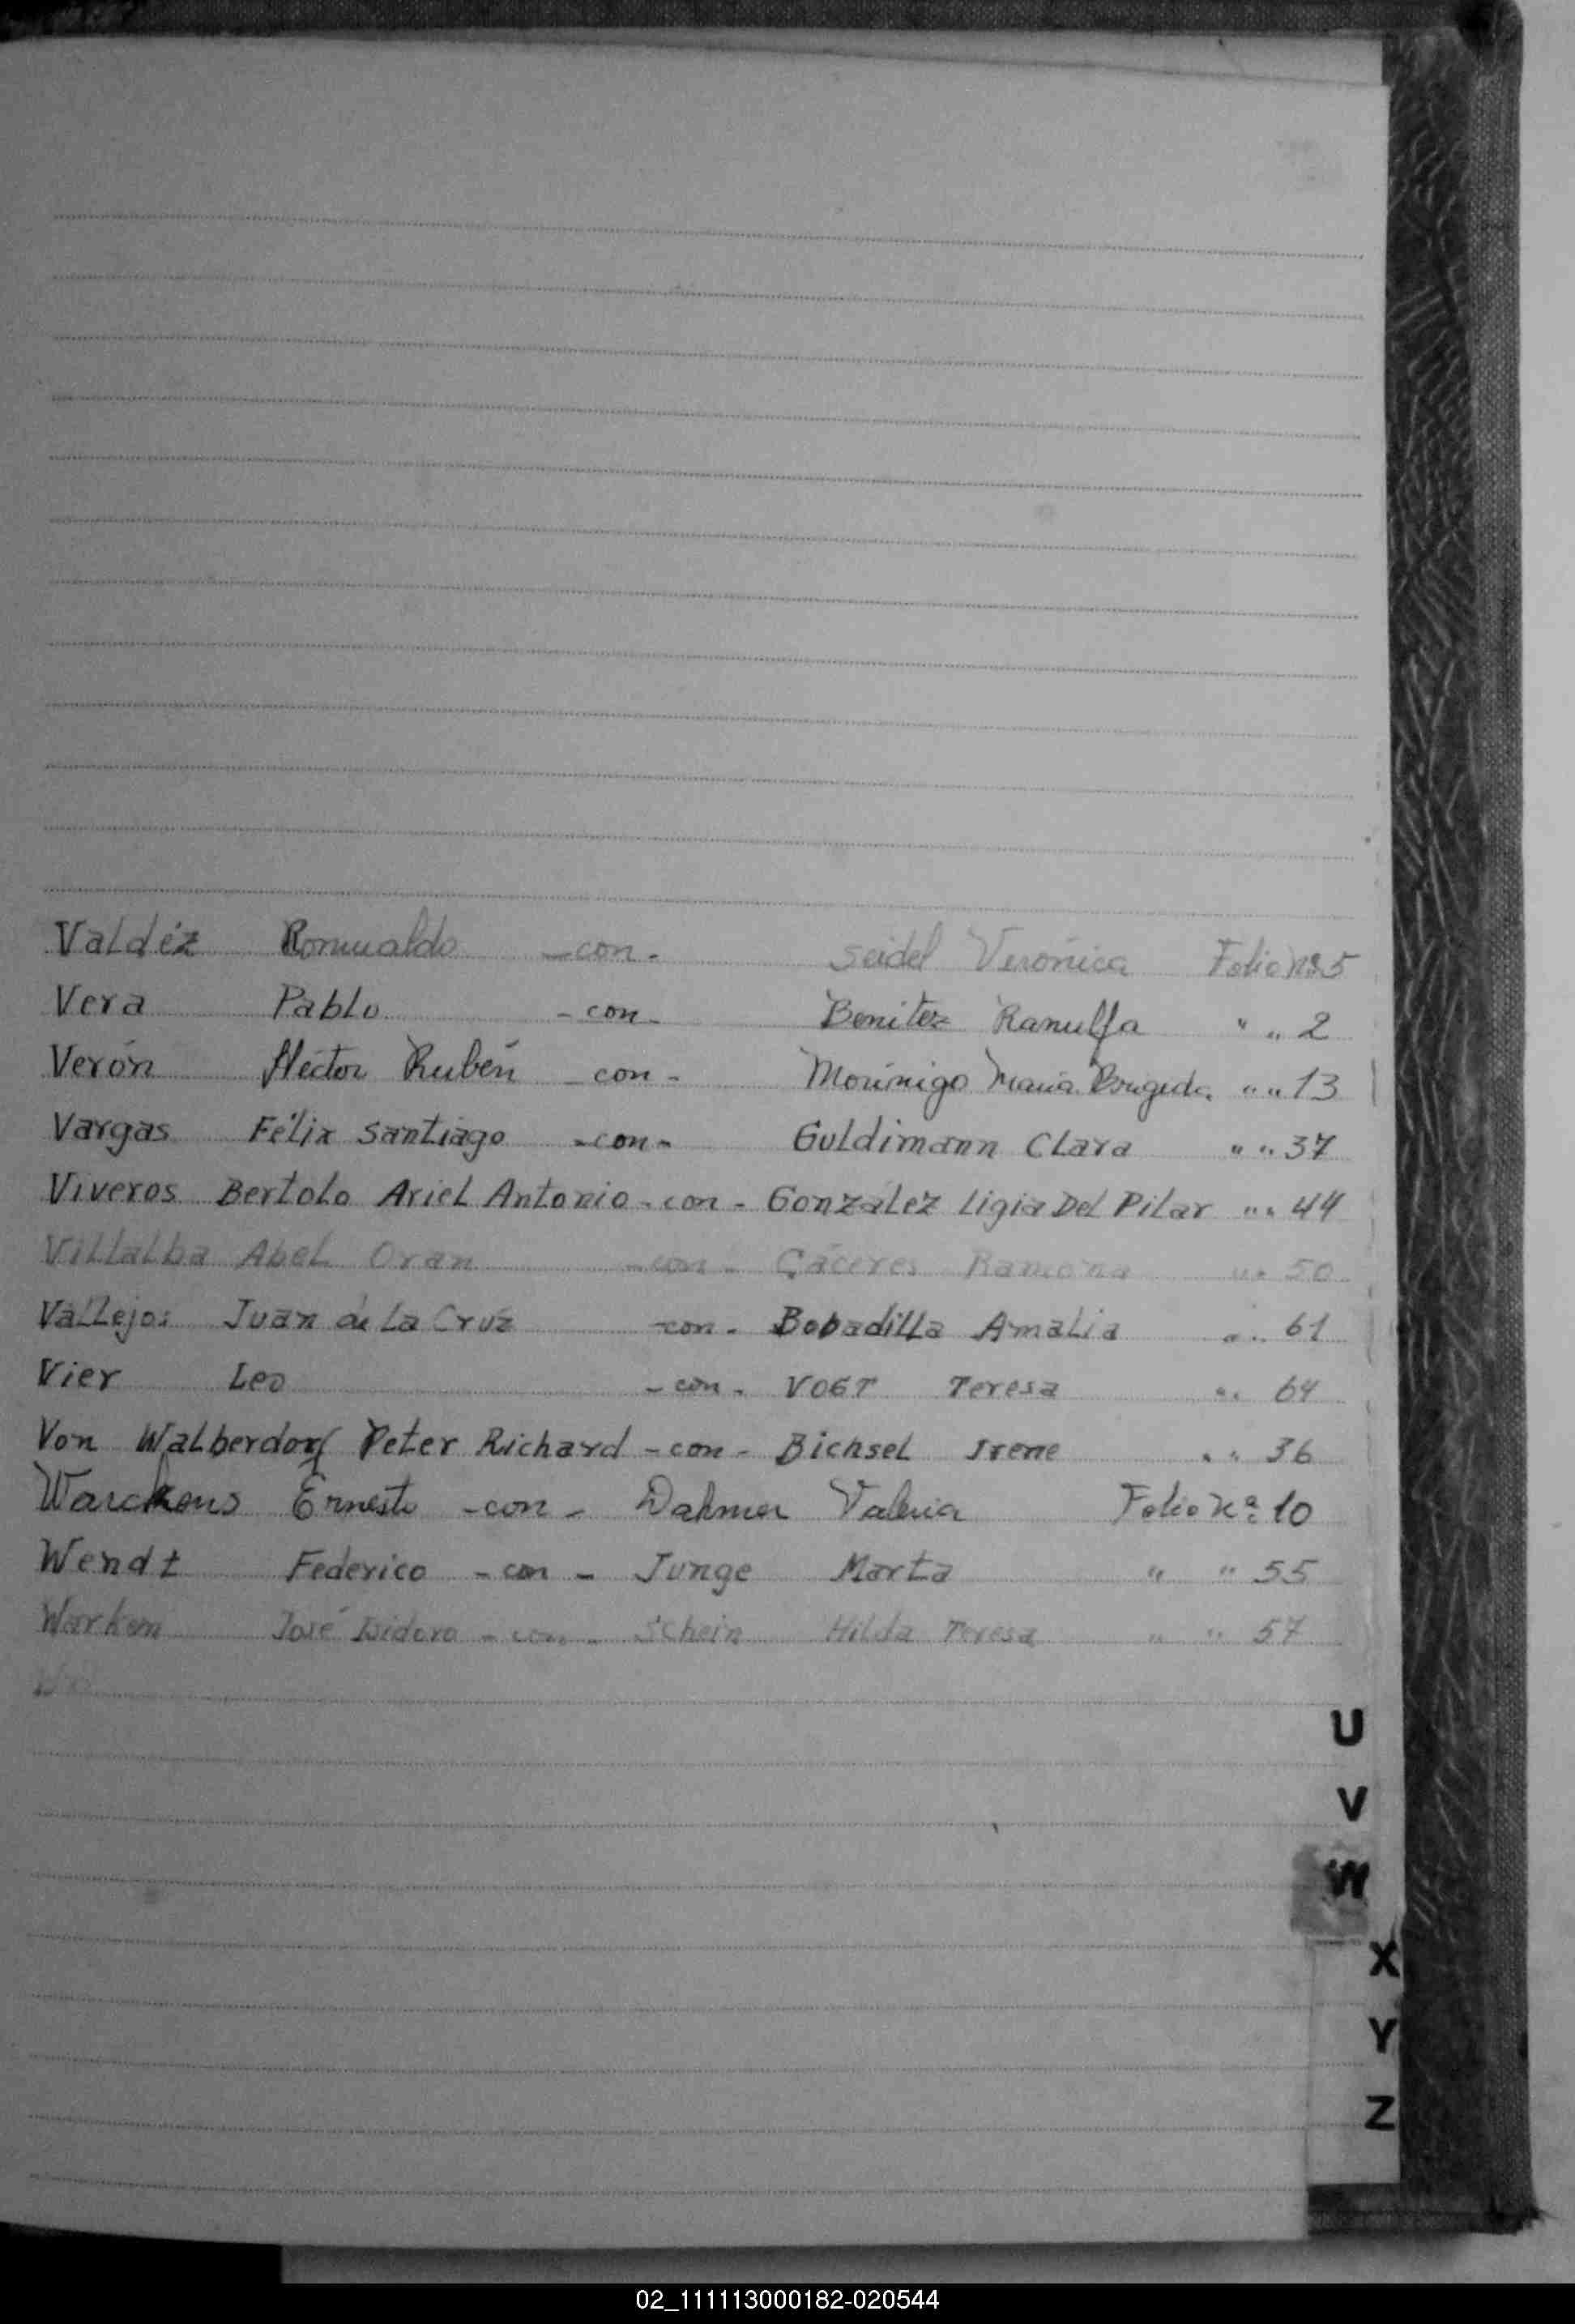 Valdéz Romualdo -con- Seidel Verónica Folio Nº 5
Vera Pablo -con- Benitez Ranulfa " " 2
Verón Héctor Rubén -con- Morínigo María Brigida " " 13
Vargas Félix Santiago -con- Guldimann Clara " " 37
Viveros Bertolo Ariel Antonio -con- González Ligia Del Pilar " " 44
Villalba Abel Oran -con- Cáceres Ramona " " 50
Vallejos Juan de La Cruz -con- Bobadilla Amalia " " 61
Vier Leo -con- VOGT Teresa " " 64
Von Walberdorf Peter Richard -con- Bichsel Irene " " 36
Warckens Ernesto -con- Dahmer Valeria Folio Nº 10
Wendt Federico -con- Junge Marta " " 55
Warken José Isidoro -con- Schein Hilda Teresa " " 57
U
V
W
X
Y
Z
02_111113000182-020544